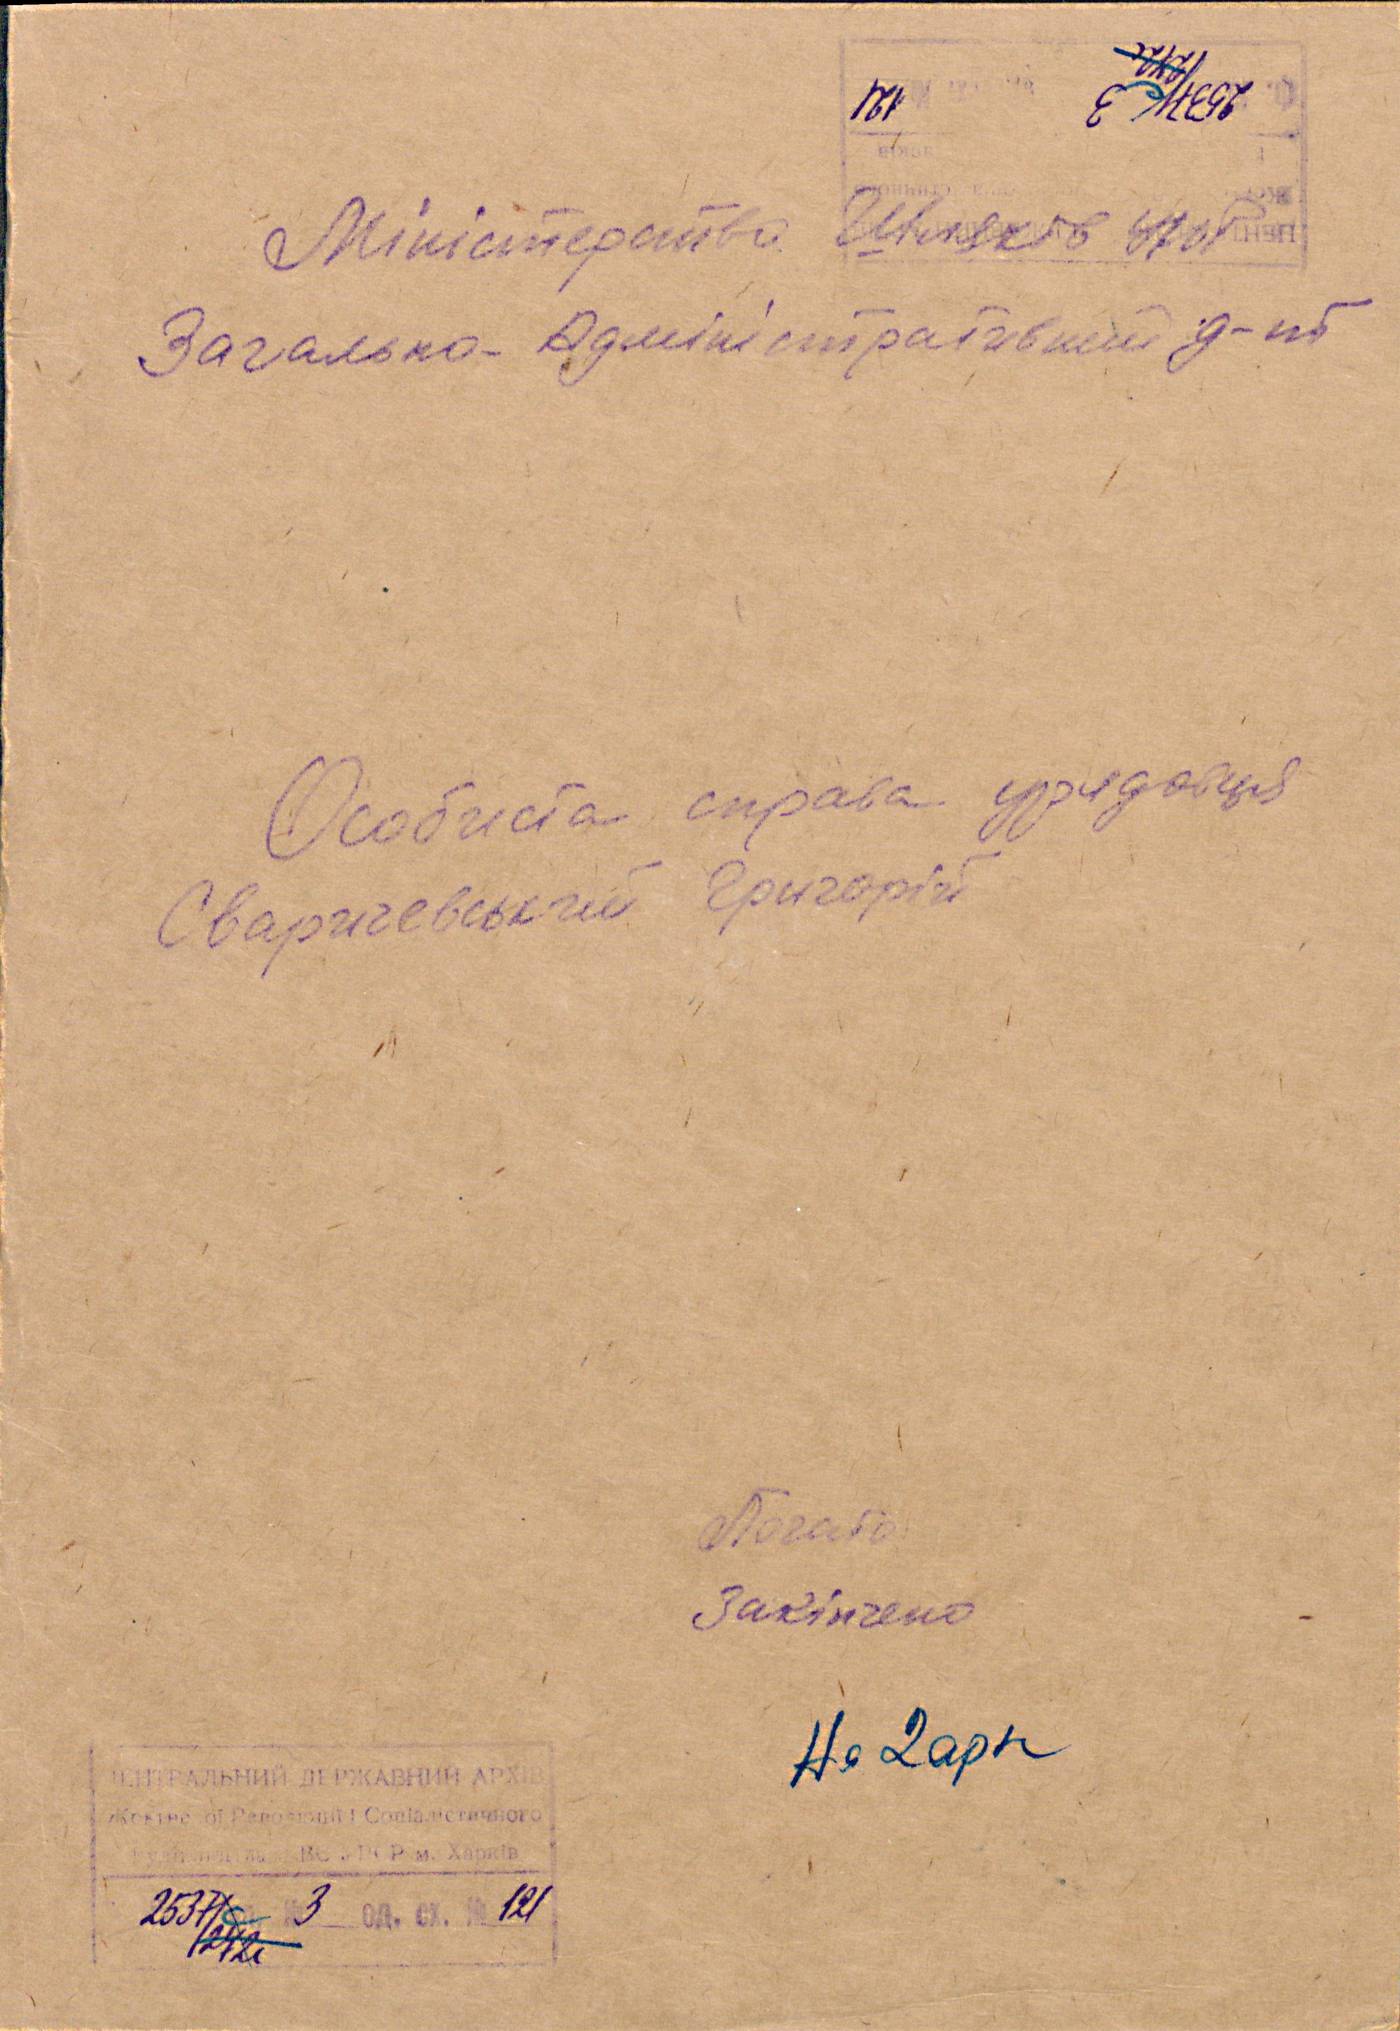 Міністерства Шляхів УНР
Загально-Адміністративний д-пт
Особиста справа урядовця
Сваричевський Григорій
Почато
Закінчено
На 2 арк
ЦЕНТРАЛЬНИЙ ДЕРЖАВНИЙ АРХІВ
Жовтневої Революції і Соціалістичного
Будівництва УРСР м. Харків
2537/с № 3 од. сх. № 121
1242с
2537/с 3 121
1242с